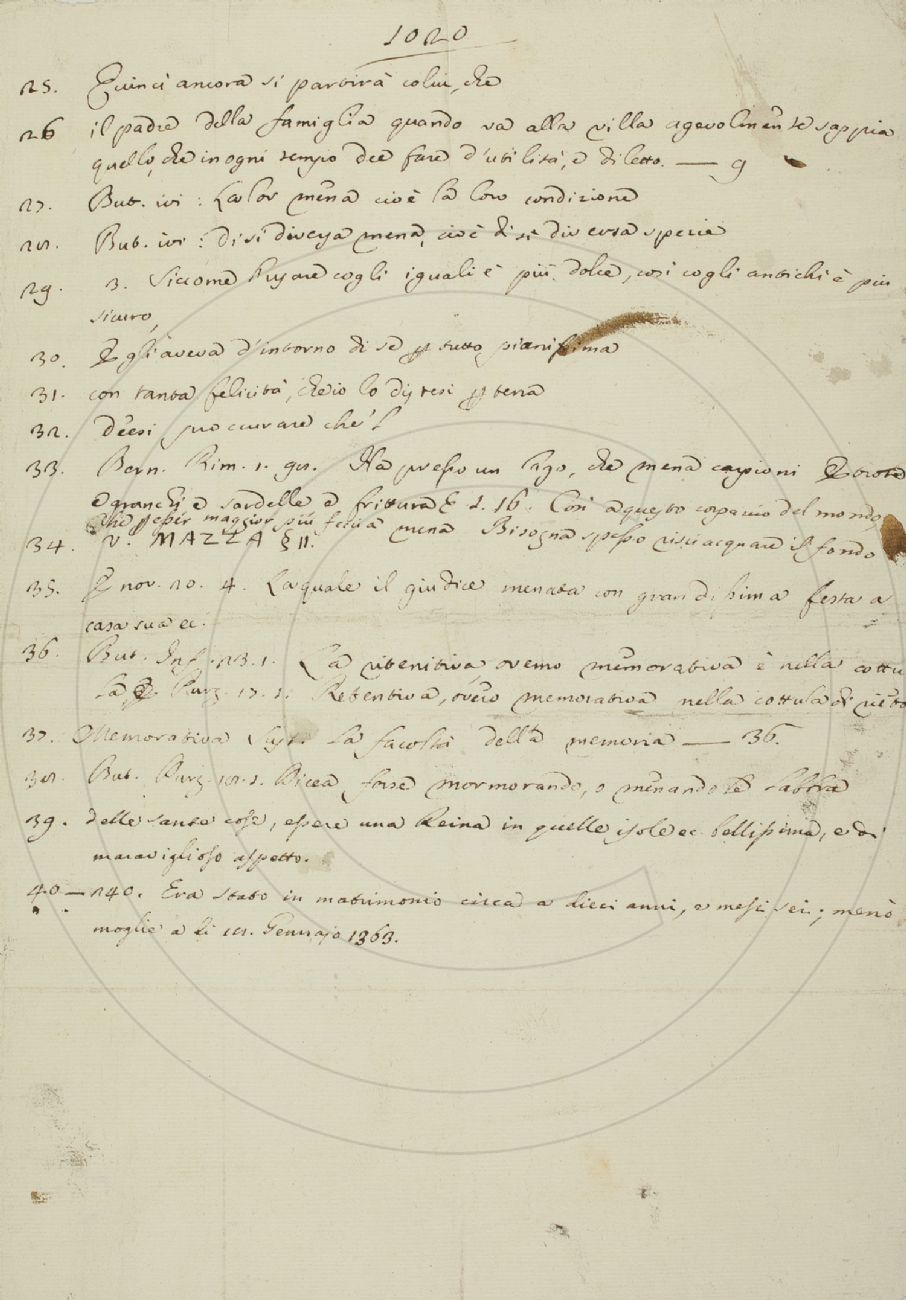 1020
25. Quinci ancora si partirà colui, che
26 il padre della famiglia quando va alla villa agevolmente sappia
quello, che in ogni tempio dee fare d'utilità, e diletto. — 9
27. But. ivi : La lor mena cioè la loro condizione
28. But. ivi : di sì diversa mena, cioè di sì diversa spezie
29. 3. Siccome l'usare cogli iguali è più dolce, così cogli antichi è più
sicuro,
30. Egli aveva d'intorno di se p tutto pianissima
31. con tanta felicità, che io lo distesi p terra
32. deesi procurare che 'l
33. Bern. Rim. 1. 98. Ha presso un lago, che mena carpioni E trote
e granchj e sardelle e frittura E 2. 16. Così a questo corpaccio del mondo
Che p esser maggior più feccia mena Bisogna spesso risciacquare il fondo
34. V. MAZZA § II.
35. E nov. 20. 4. La quale il giudice menata con grandissima festa a
casa sua ec.
36. But. Inf. 23. 1. La ritenitiva ovvero memorativa è nella cottu
la E Purg. 17. 1. Retentiva, overo memorativa nella cottula di rieto
37. Memorativa Sust. La facoltà della memoria — 36.
38. But. Purg. 18. 1. Dicea forse mormorando, o menando le labbra
39. delle sante cose, essere una Reina in quelle isole ec. bellissima, e di
maraviglioso aspetto.
40 — 240. Era stato in matrimonio circa a dieci anni, e mesi sei; menò
moglie a dì 18. Gennajo 1363.